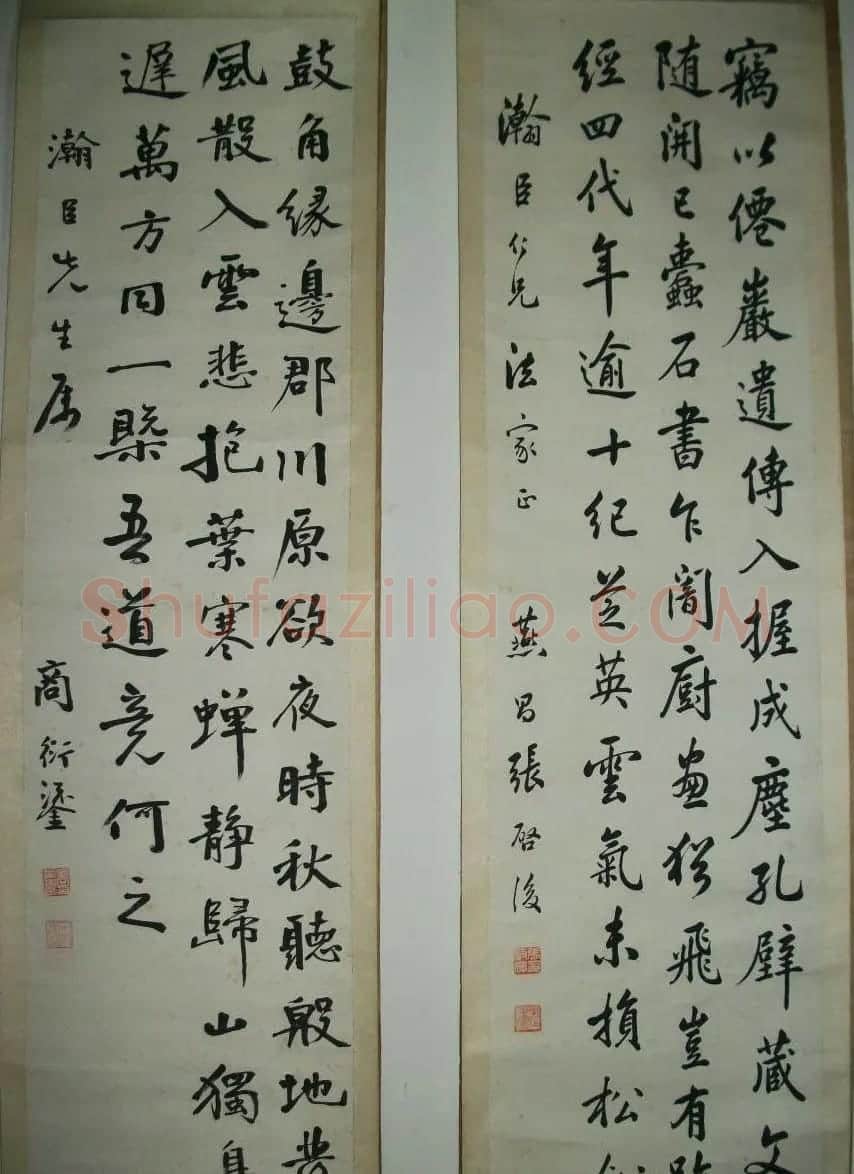 竊以僊巖遺傳入握成塵孔壁藏文
随開已蠹石書乍闇廚畫猶飛豈有
經四代年逾十紀芝英雲氣未損松
瀚臣仁兄法家正 燕昌張啓後
鼓角緣邊郡川原欲夜時秋聽殷地發
風散入雲悲抱葉寒蟬靜歸山獨鳥
遲萬方同一槩吾道竟何之
瀚臣先生属 商衍鎏
Shufaziliao.COM